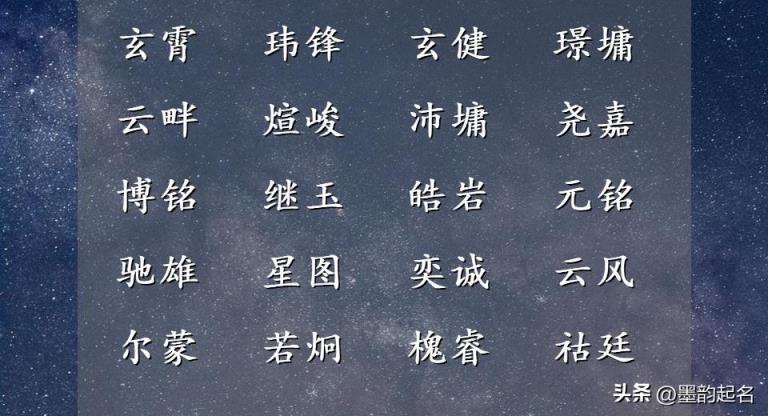 玄霄 玮锋 玄健 璟墉
云畔 煊峻 沛墉 尧嘉
博铭 继玉 皓岩 元铭
驰雄 星图 奕诚 云风
尔蒙 若炯 槐睿 祜廷
头条 @墨韵起名